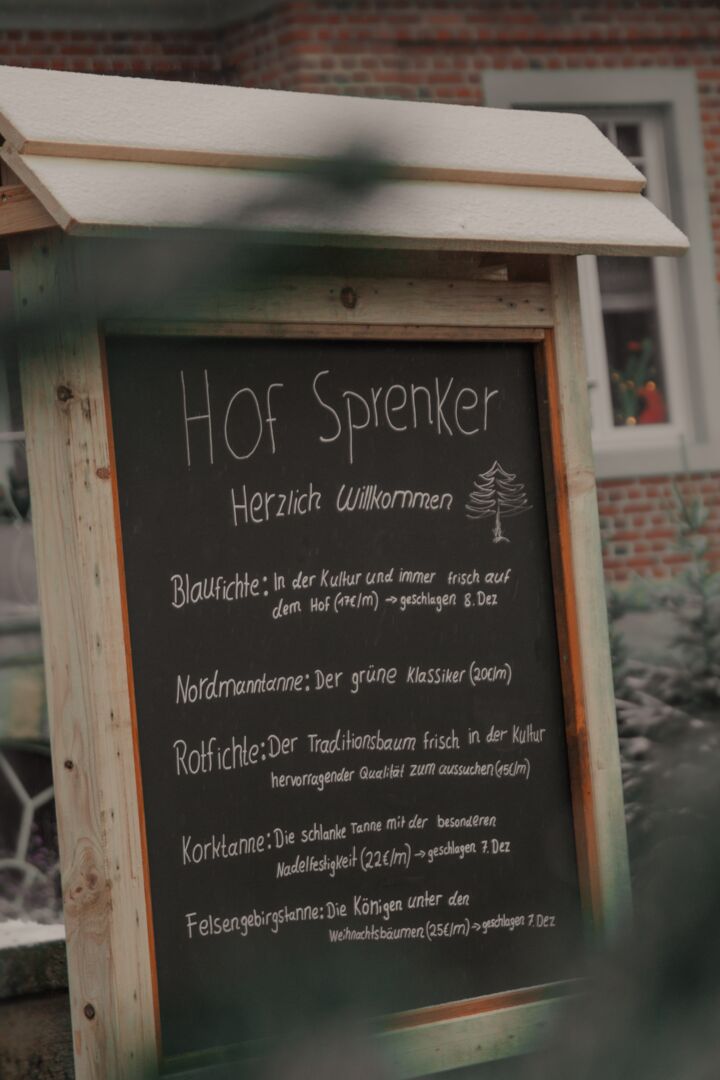 Hof Sprenker
Herzlich Willkommen
Blaufichte: In der Kultur und immer frisch auf
dem Hof (17€/m) → geschlagen 8. Dez
Nordmanntanne: Der grüne Klassiker (20€/m)
Rotfichte: Der Traditionsbaum frisch in der Kultur
hervorragender Qualität zum aussuchen (15€/m)
Korktanne: Die schlanke Tanne mit der besonderen
Nadelfestigkeit (22€/m) → geschlagen 7. Dez
Felsengebirgstanne: Die Königen unter den
Weihnachtsbäumen (25€/m) → geschlagen 7. Dez